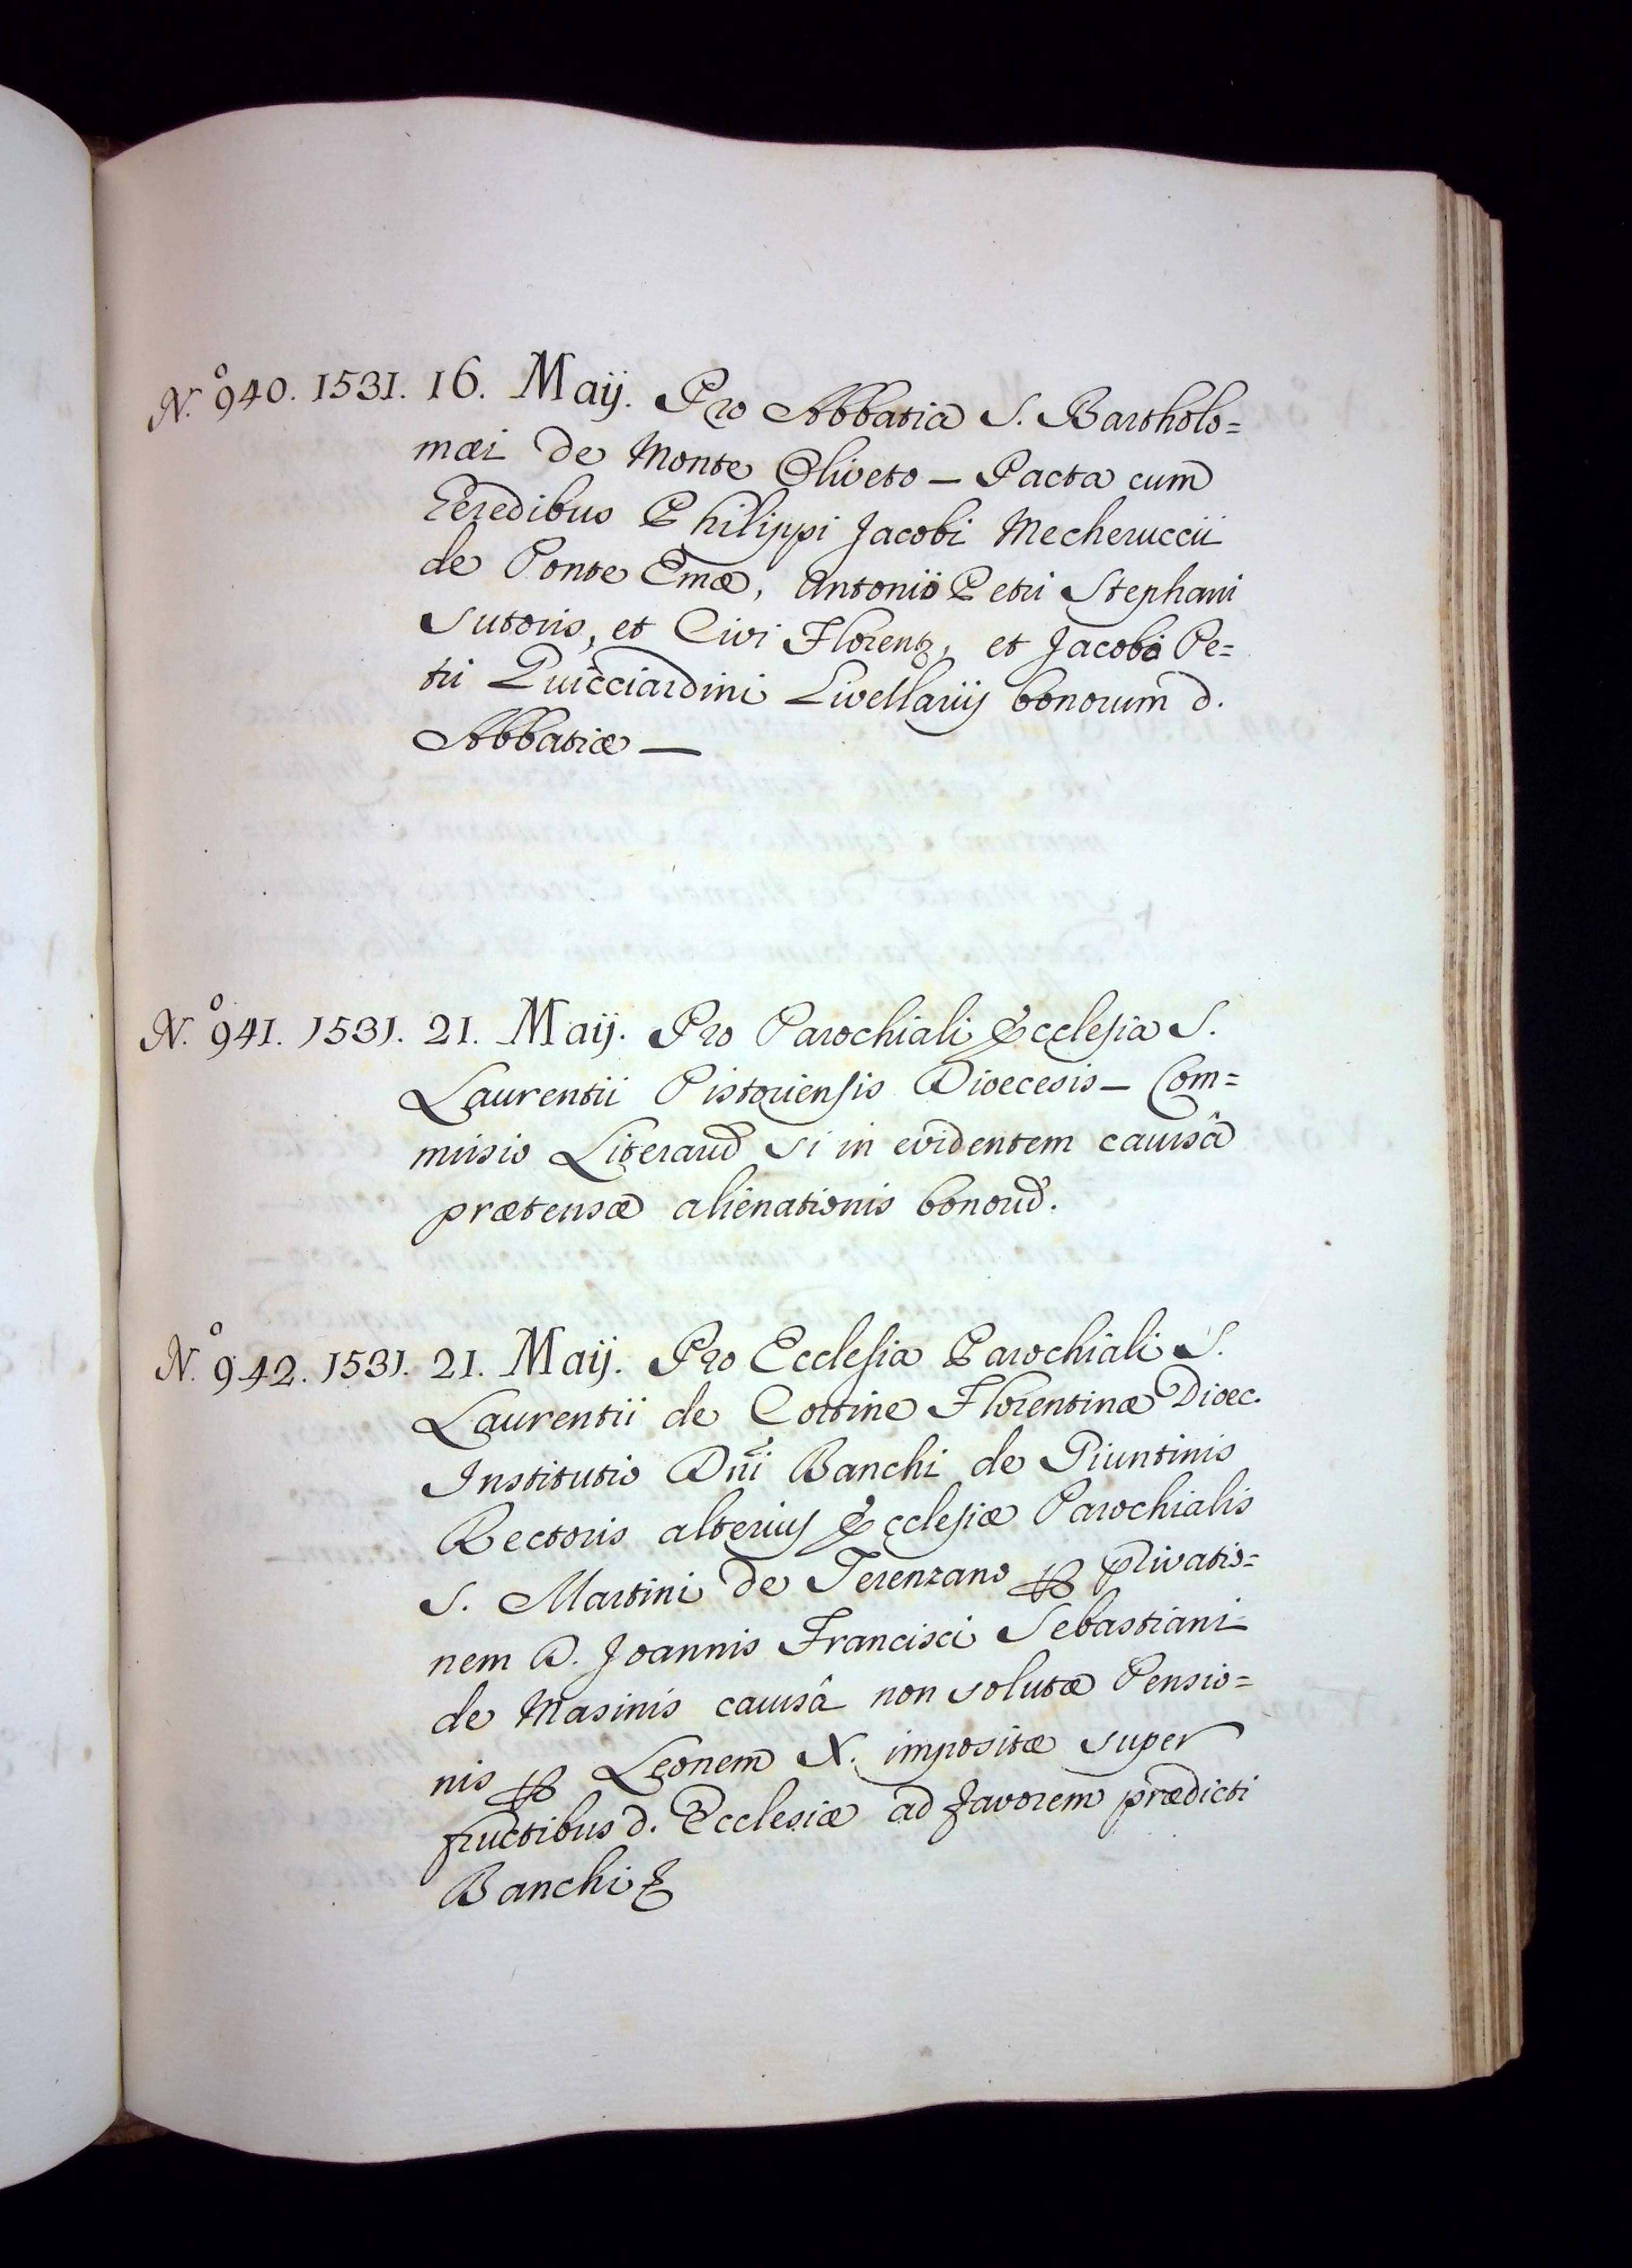 N.º 940. 1531. 16. Maij. Pro Abbatia S. Bartholo=
mæi de Monte Oliveto — Pacta cum
Heredibus Philippi Jacobi Mecheruccii
de Ponte Emæ, Antonio Petri Stephani
Sutoris, et Civi Florent., et Jacobo Pe=
tri Guicciardini Livellariis bonorum d.
Abbatiæ —
N.º 941. 1531. 21. Maij. Pro Parochiali Ecclesia S.
Laurentii Pistoriensis Dioecesis — Com=
misio Literarũ si in evidentem causâ
prætensæ alienationis bonorũ.
N.º 942. 1531. 21. Maij. Pro Ecclesia Parochiali S.
Laurentii de Cortine Florentinæ Dioec.
Institutio Dñi Banchi de Giuntinis
Rectoris alterius Ecclesiæ Parochialis
S. Martini de Terenzano ꝑ privatio=
nem D. Joannis Francisci Sebastiani
de Masinis causâ non solutæ Pensio=
nis ꝑ Leonem X. impositæ super
fructibus d. Ecclesiæ ad favorem prædicti
Banchi &